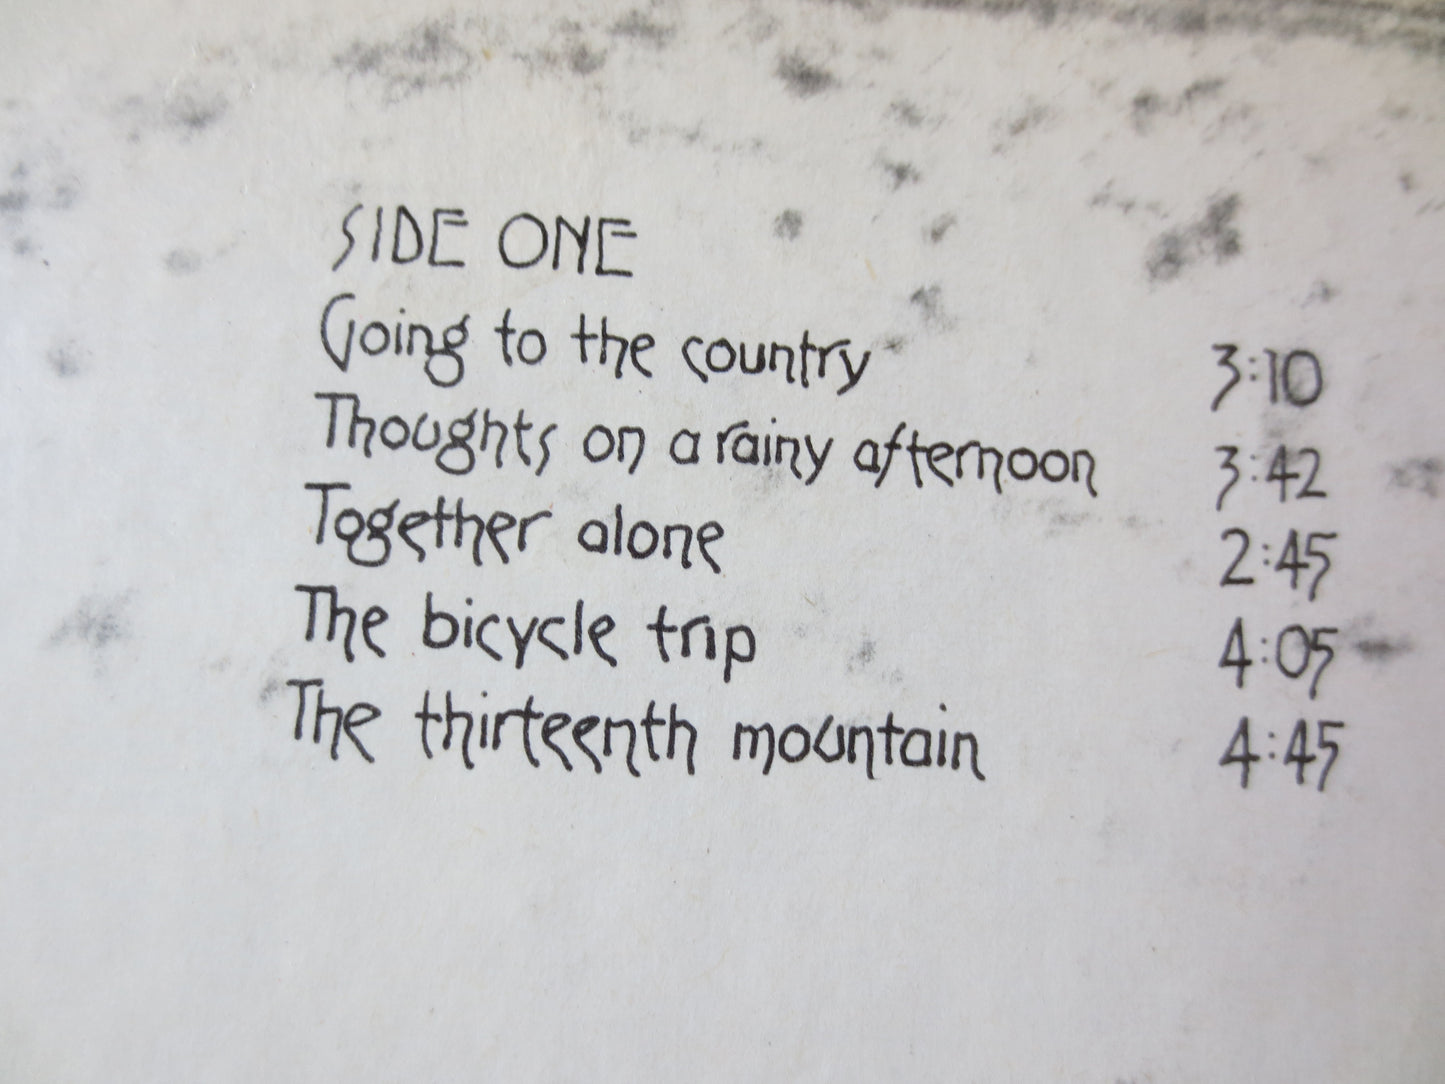 SIDE ONE
Going to the country 3:10
Thoughts on a rainy afternoon 3:42
Together alone 2:45
The bicycle trip 4:05
The thirteenth mountain 4:45